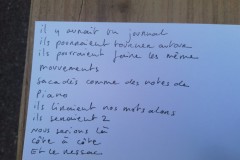 il y aurait un journal
ils pourraient tourner autour
ils pourraient faire les même
mouvements
saccadés comme des notes de
piano
ils liraient nos mots alors
ils seraient 2
nous serions là
côte à côte
Et le ressac